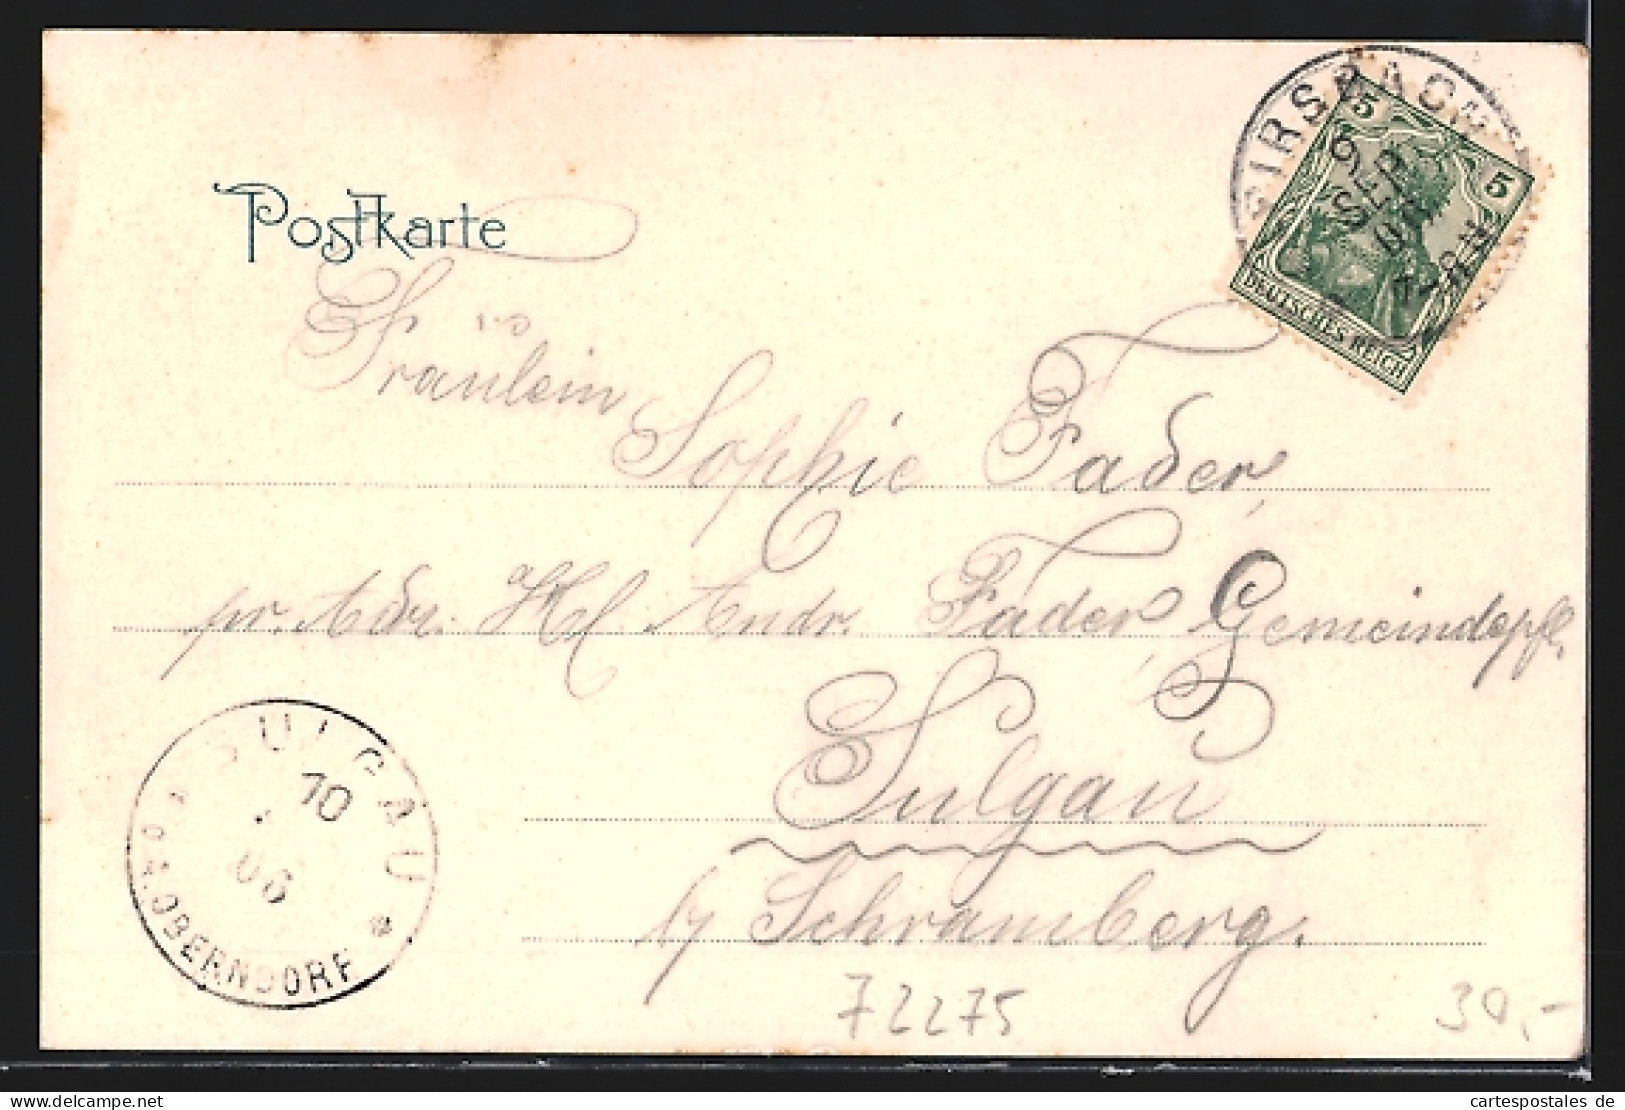 Postkarte
5
5
9
SEP
DEUTSCHES REICH
Fräulein
Sophie Fader,
pr. Adr. Hl. Andr. Fader, Gemeindepfl.
Sulgau
b/ Schramberg.
SULGAU
10
06
O.A. OBERNDORF
72275
30,-
www.cartespostales.de
cartespostales de